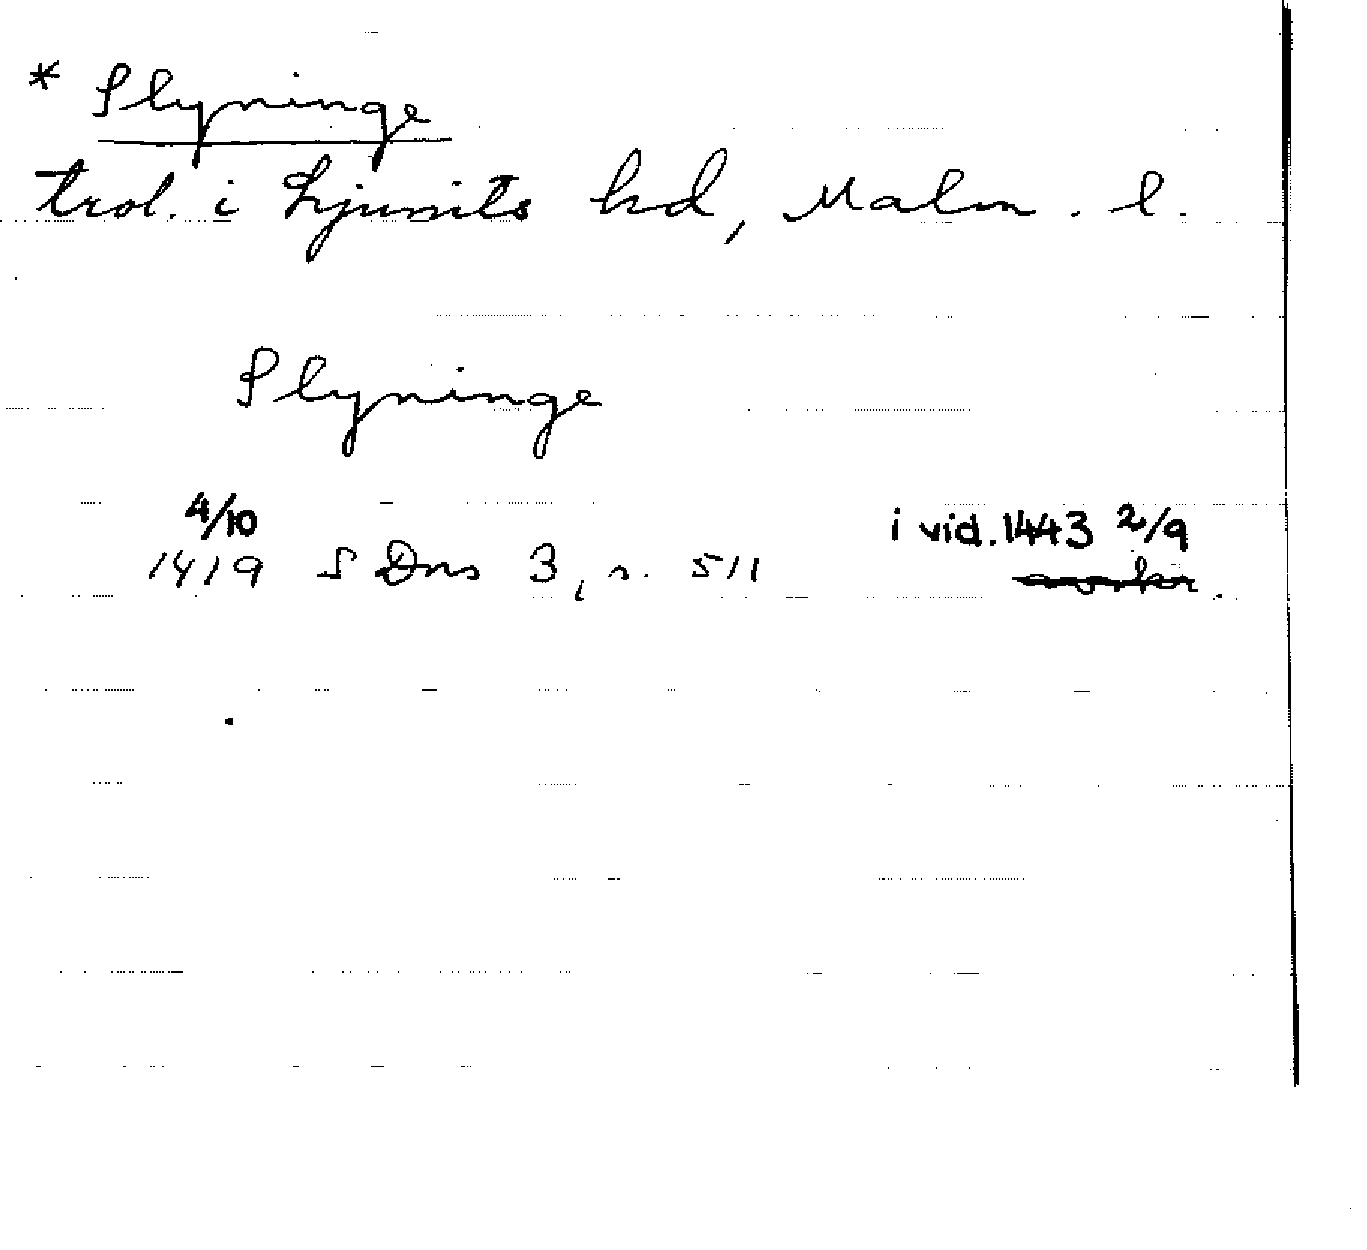 * Slyninge
trol. i Ljunits hd, Malm. l.
Slyninge
4/10
1419 S Dns 3, s. 511
i vid. 1443 2/9